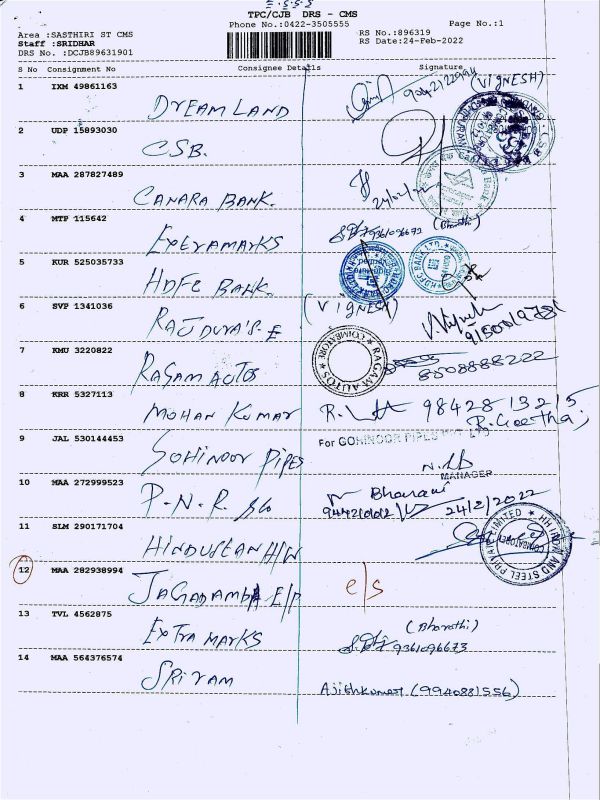 TPC/CJB DRS - CMS
Phone No.:0422-3505555
Page No.:1
Area :SASTHIRI ST CMS
RS No.:896319
Staff :SRIDHAR
RS Date:24-Feb-2022
DRS No. :DCJB89631901
S No Consignment No Consignee Details Signature
1 IXM 49861163
DREAMLAND
(VIGNESH)
2 UDP 15893030
CSB.
3 MAA 287827489
CANARA BANK.
24/02/22
4 MTP 115642
EXTRAMARKS
(Bharathi)
9361096672
5 KUR 525035733
HDFC BANK.
HDFC BANK LTD.
6 SVP 1341036
(VIGNESH)
7 KMU 3220822
RAGAM AUTOS
RAGAM AUTOS
COIMBATORE
8508888222
8 KRR 5327113
MOHAN KUMAR
98428 13215
R. Geetha
9 JAL 530144453
For GOHINOOR PIPES PVT LTD
GOHINOOR PIPES
MANAGER
10 MAA 272999523
P.N.R
Bharani
24/2/2022
11 SLM 290171704
HINDUSTAN H/W
12 MAA 282938994
JAGADAMBA E/P
e/s
13 TVL 4562875
EXTRA MARKS
(Bharathi)
9361096673
14 MAA 564376574
SRIRAM
Ajithkumar (9940881556)